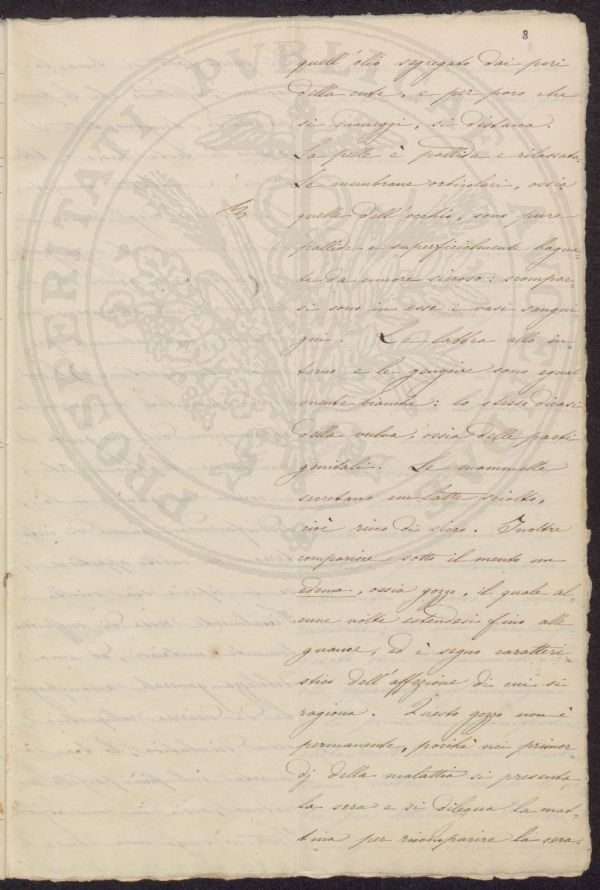 8
quell'olio segregato dai pori
della cute, e per poco che
si maneggi, si distacca.
La pelle è pallida e rilassata.
Le membrane orbicolari, ossia
quelle dell'occhio, sono pure
pallide e superficialmente bagna-
te da umore sieroso: scompar-
si sono in esse i vasi sangui-
gni. Le labbra allo in-
terno e le gengive sono egual-
mente bianche: lo stesso dicasi
della vulva, ossia delle parti
genitali. Le mammelle
secretano un latte sciolto,
cioè ricco di siero. Inoltre
comparisce sotto il mento un
edema, ossia gozzo, il quale al-
cune volte estendesi fino alle
guance, ed è segno caratteri-
stico dell'affezione di cui si
ragiona. Questo gozzo non è
permanente, poichè nei primor-
dj della malattia si presenta
la sera e si dilegua la mat-
tina per ricomparire la sera.
PROSPERITATI PVBLICAE AVGENDAE